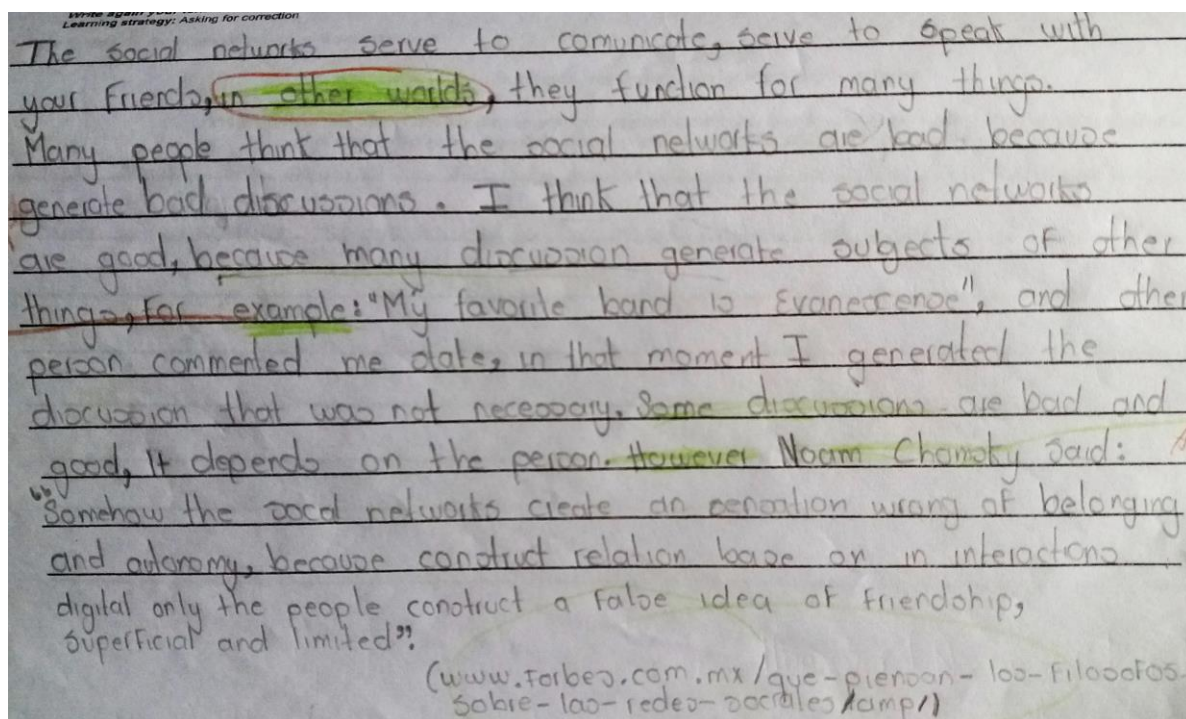 Write again your
Learning strategy: Asking for correction
The social networks serve to comunicate, serve to speak with
your friends, in other worlds, they function for many things.
Many people think that the social networks are bad because
generate bad discussions. I think that the social networks
are good, because many discussion generate subgects of other
things, For example: "My favorite band is Evanescense", and other
person commented me date, in that moment I generated the
discussion that was not necessary. Some discussions are bad and
good, It depends on the person. However Noam Chomsky said:
"Somehow the socal networks create an sensation wrong of belonging
and autonomy, because construct relation base on in interactions
digital only the people construct a false idea of friendship,
superficial and limited".
(www.forbes.com.mx/que-piensan-los-filosofos-
sobre-las-redes-sociales/amp/)